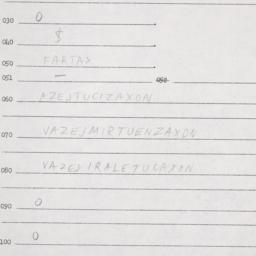 030 0
040 $
050 FARTAX
051 — 052
060 AZEJTUCIZAXON
070 VAZEJMIRTUENZAXON
080 VAZEJIRALETUCAXON
090 0
100 0